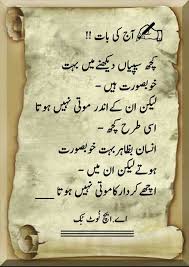 آج کی بات !!
کچھ سیپیاں دیکھنے میں بہت
خوبصورت ہیں -
لیکن ان کے اندر موتی نہیں ہوتا
اسی طرح کچھ -
انسان بظاہر بہت خوبصورت
ہوتے لیکن ان میں -
اچھے کردار کا موتی نہیں ہوتا ___
اے۔ ایچ نوٹ بک